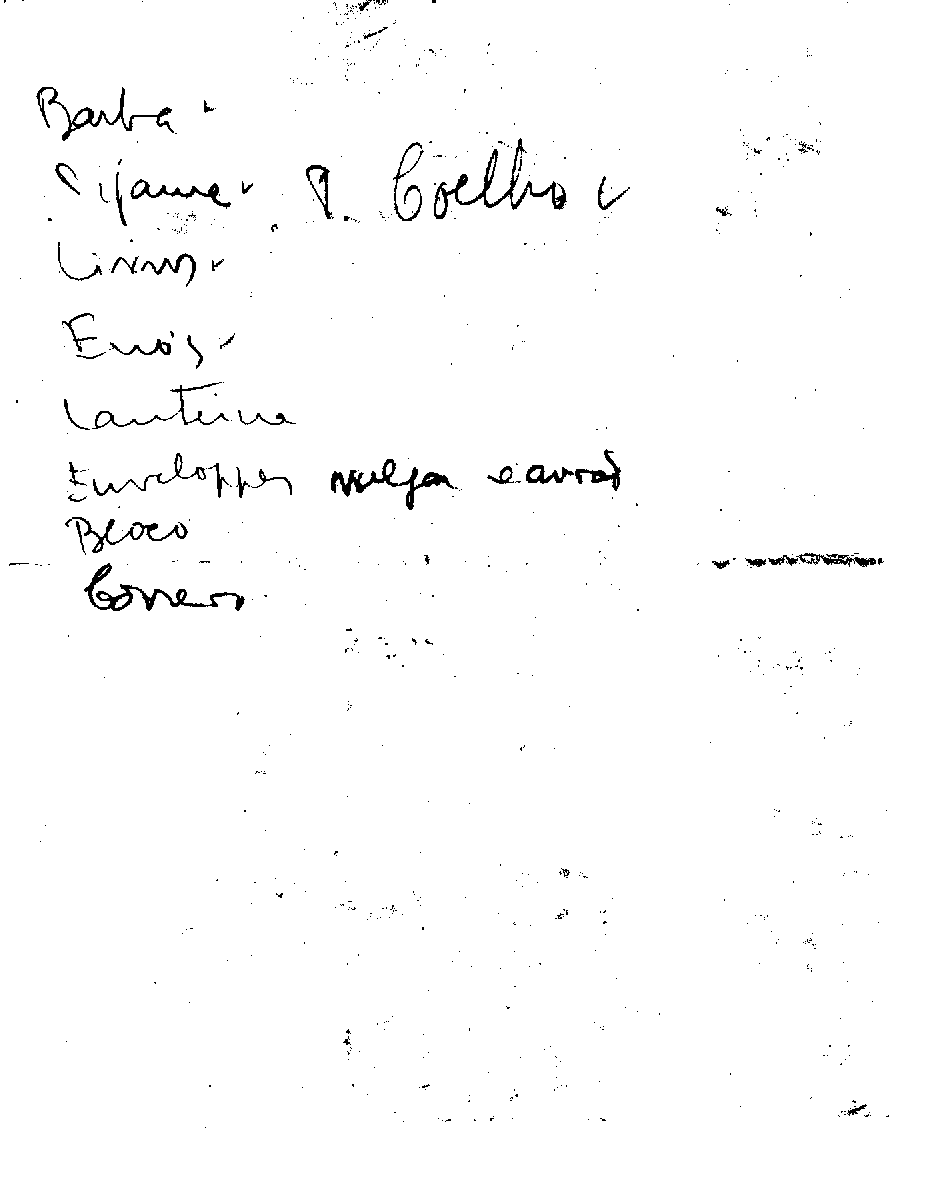 Barba
P. Coelho
Livros
Enós
Lanterna
Enveloppes vulgar e avião
Bloco
Correio